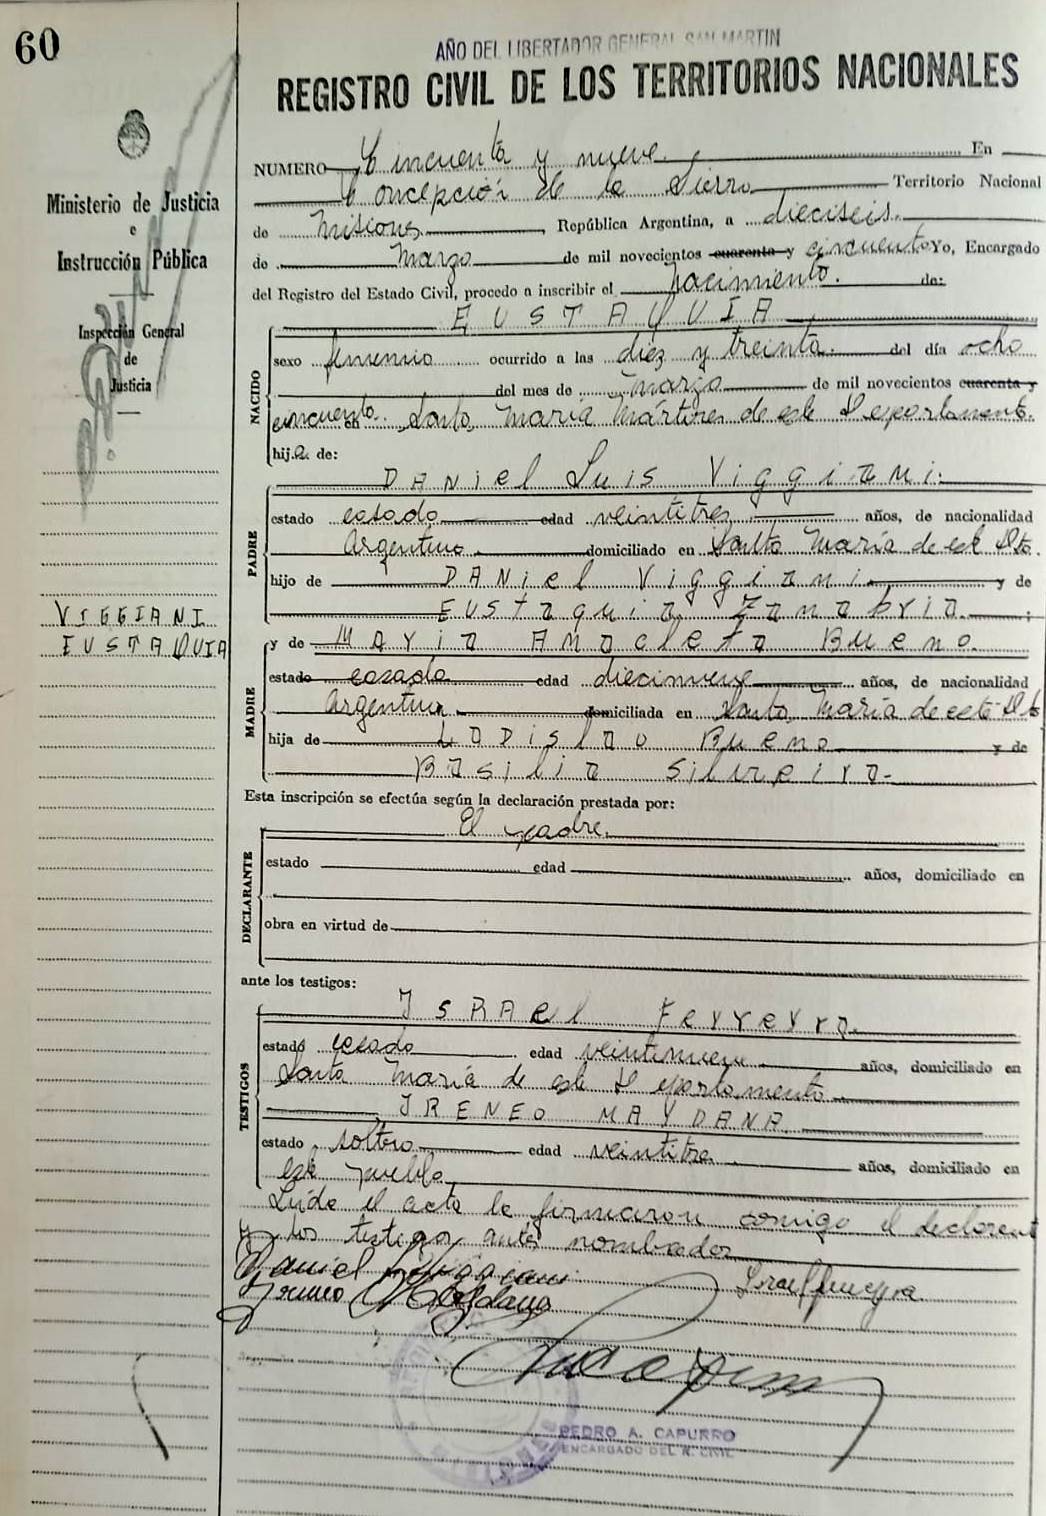 60
AÑO DEL LIBERTADOR GENERAL SAN MARTIN
REGISTRO CIVIL DE LOS TERRITORIOS NACIONALES
Ministerio de Justicia
e
Instrucción Pública
Inspección General
de
Justicia
VIGGIANI
EUSTAQUIA
NUMERO Cincuenta y nueve. En
Concepción de la Sierra Territorio Nacional
de Misiones, República Argentina, a dieciseis
de Marzo de mil novecientos cuarenta y cincuenta Yo, Encargado
del Registro del Estado Civil, procedo a inscribir el nacimiento. de:
NACIDO
EUSTAQUIA
sexo femenino ocurrido a las diez y treinta. del día ocho
del mes de marzo de mil novecientos cuarenta y
cincuenta. en Santa María Mártires de este Departamento.
hija de:
PADRE
DANiel Luis Viggiani.
estado casado edad veintitres años, de nacionalidad
Argentino domiciliado en Santa María de este Dto.
hijo de DANiel Viggiani y de
Eustaquia Zanabria ;
MADRE
y de Maria Anacleta Bueno.
estado casada edad diecinueve años, de nacionalidad
Argentina domiciliada en Santa María de este Dto
hija de Ladislao Bueno y de
Basilia Silveira.-
Esta inscripción se efectúa según la declaración prestada por:
DECLARANTE
El padre.
estado edad años, domiciliado en
obra en virtud de
ante los testigos:
TESTIGOS
ISRAel Ferreyra.
estado casado edad veintinueve años, domiciliado en
Santa María de este Departamento
IRENEO MAYDANA.
estado soltero edad veintitres años, domiciliado en
este pueblo.
Leída el acta la firmaron comigo el declarant
y los testigos antes nombrados
Daniel Viggiani
Israel Ferreyra
Ireneo Maydana
PEDRO A. CAPURRO
ENCARGADO DEL R. CIVIL